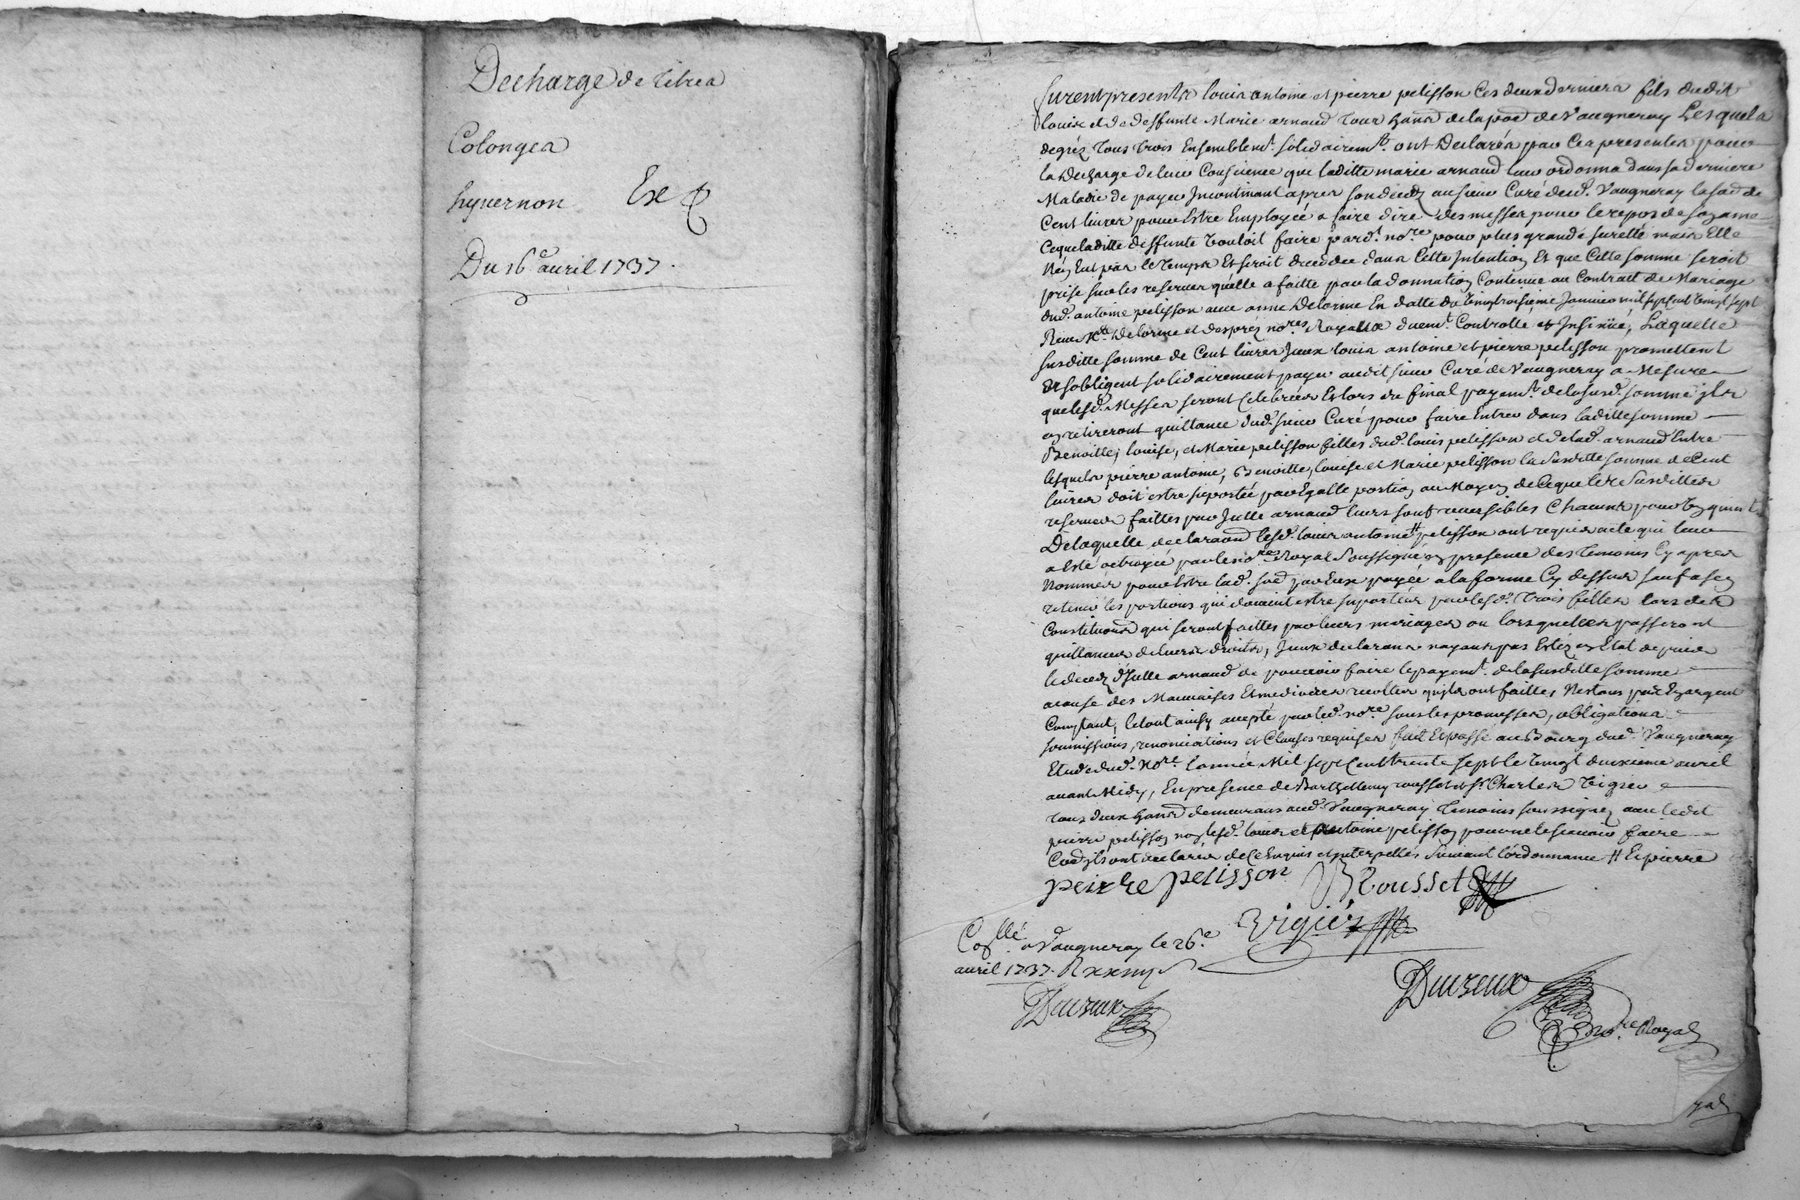 Decharge de titres
Colonges
hyuernon Ex
Du 16e auril 1737.
furent presents louis antoine et pierre pelisson Ces deux derniers fils dudit
louis et de deffunte Marie arnaud tous de la de Vaugneray Lesquels
degréz tous trois Ensemblemt. solidairemt. ont Declarés par Ces presentes pour
la Decharge de leur Conscience que laditte marie arnaud leur ordonna dans sa derniere
Maladie de payer Incontinant apres son deceds au sieur Curé dud. Vaugneray la de
Cent liures pour Estre Employée a faire dire des messes pour le repos de son ame
Ceque laditte deffunte Vouloit faire pardt. nore. pour plus grande suretté mais Elle
Neu Eut pas le temps Et seroit decedée dans Cette Intention Et que Cette somme seroit
prise sur les reserues quelle a faitte par la donnation Contenue au Contratt de Mariage
dud. antoine pelisson auec anne Delorme En datte du Vingttroisieme Januier mil sept cent Vingt sept
Receu Delorme et després nores Royaux duemt. Controllé et Insinüé, Laquelle
susditte somme de Cent liures Iceux louis antoine et pierre pelisson promettent
et sobligent solidairement payer audit sieur Curé de Vaugneray a Mesure
quelesd. Messes seront Celebrées Et lors du final payemt. de la susd. somme ils
en retireront quittance dud. sieur Curé pour faire Entrer dans laditte somme
Benoitte, louise, et Marie pelisson filles dud. louis pelisson et de lad. arnaud Entre
lesquels pierre antoine, Benoitte, louise et Marie pelisson la susditte somme de Cent
liures doit estre suportée par Egalle portion au Moyen de Ceque les susdittes
reserues faittes par Icelle arnaud leurs sont reuersibles Chacuns pour Un quint
De laquelle declaraon lesd. louis antoine # pelisson ont requis acte qui leur
a Esté octroyée par le nore Royal Soussigné en presence des temoins Cy apres
Nommés pour Estre lad. par Eux payée a la forme Cy dessus sauf a sen
retenir les portions qui doiuent estre suportées par lesd. trois filles lors des
Constituons qui seront faittes par leurs mariages ou lors quelles passeront
quittances de leurs droits, Iceux declarans nayant pas Estéz en Etat depuis
le deceds d'Icelle arnaud de pouuoir faire le payemt. de la susditte somme
a cause des Mauuaises Et mediocres recoltes quils ont faittes, Nestans pas En argent
Comptant, le tout ainsy accepté par led. nore sous les promesses, obligations
soumissions, renonciations et Clauses requises fait Et passé au Bourg dud. Vaugneray
Etude dud. Nore lannée Mil sept Cent trente sept le Vingt deuxieme auril
auant Midy, En presence de Barthellemy rousset et Sr. Charles Vigier
tous deux demeurans aud. Vaugneray temoins soussignéz auec ledit
pierre pelisson non lesd. louis et antoine pelisson pour ne le scauoir faire
ils ont declarés de Ce Enquis et interpellés Suiuant l'ordonnance # Et pierre
peirre pelisson BRousset
Vigier
Conllé a Vaugneray le 26e
auril 1737. R
Duizeux
Duizeux
nore. Royal